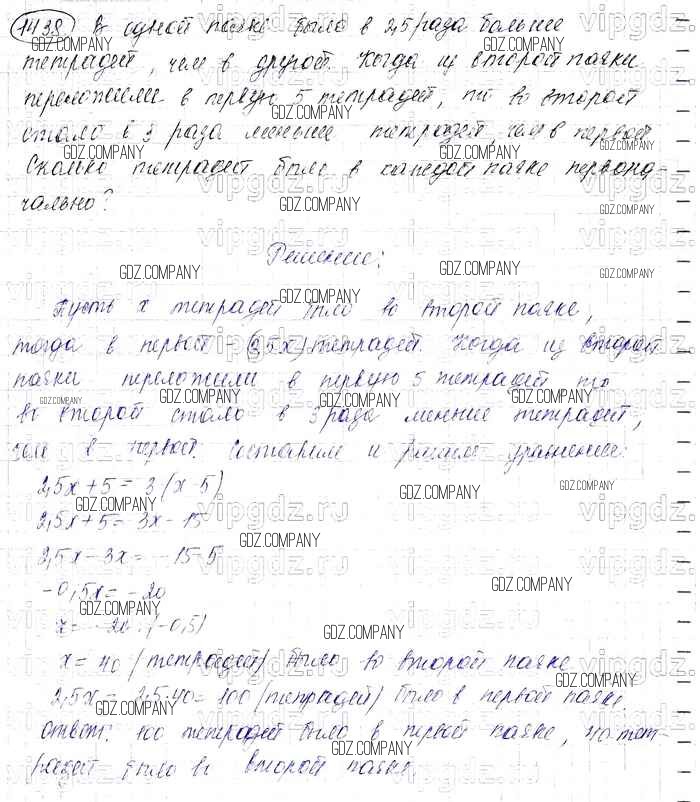 1438 В одной пачке было в 2,5 раза больше
тетрадей, чем в другой. Когда из второй пачки
переложили в первую 5 тетрадей, то во второй
стало в 3 раза меньше тетрадей, чем в первой.
Сколько тетрадей было в каждой пачке первона-
чально?
Решение:
Пусть x тетрадей было во второй пачке,
тогда в первой - (2,5x) тетрадей. Когда из второй
пачки переложили в первую 5 тетрадей то
во второй стало в 3 раза меньше тетрадей,
чем в первой. Составим и решим уравнение:
2,5x + 5 = 3 (x - 5)
2,5x + 5 = 3x - 15
2,5x - 3x = - 15 - 5
-0,5x = -20
x = -20 : (-0,5)
x = 40 (тетрадей) было во второй пачке
2,5x = 2,5·40 = 100 (тетрадей) было в первой пачке
Ответ: 100 тетрадей было в первой пачке, 40 тет-
радей было во второй пачке.
GDZ.COMPANY
vipgdz.ru